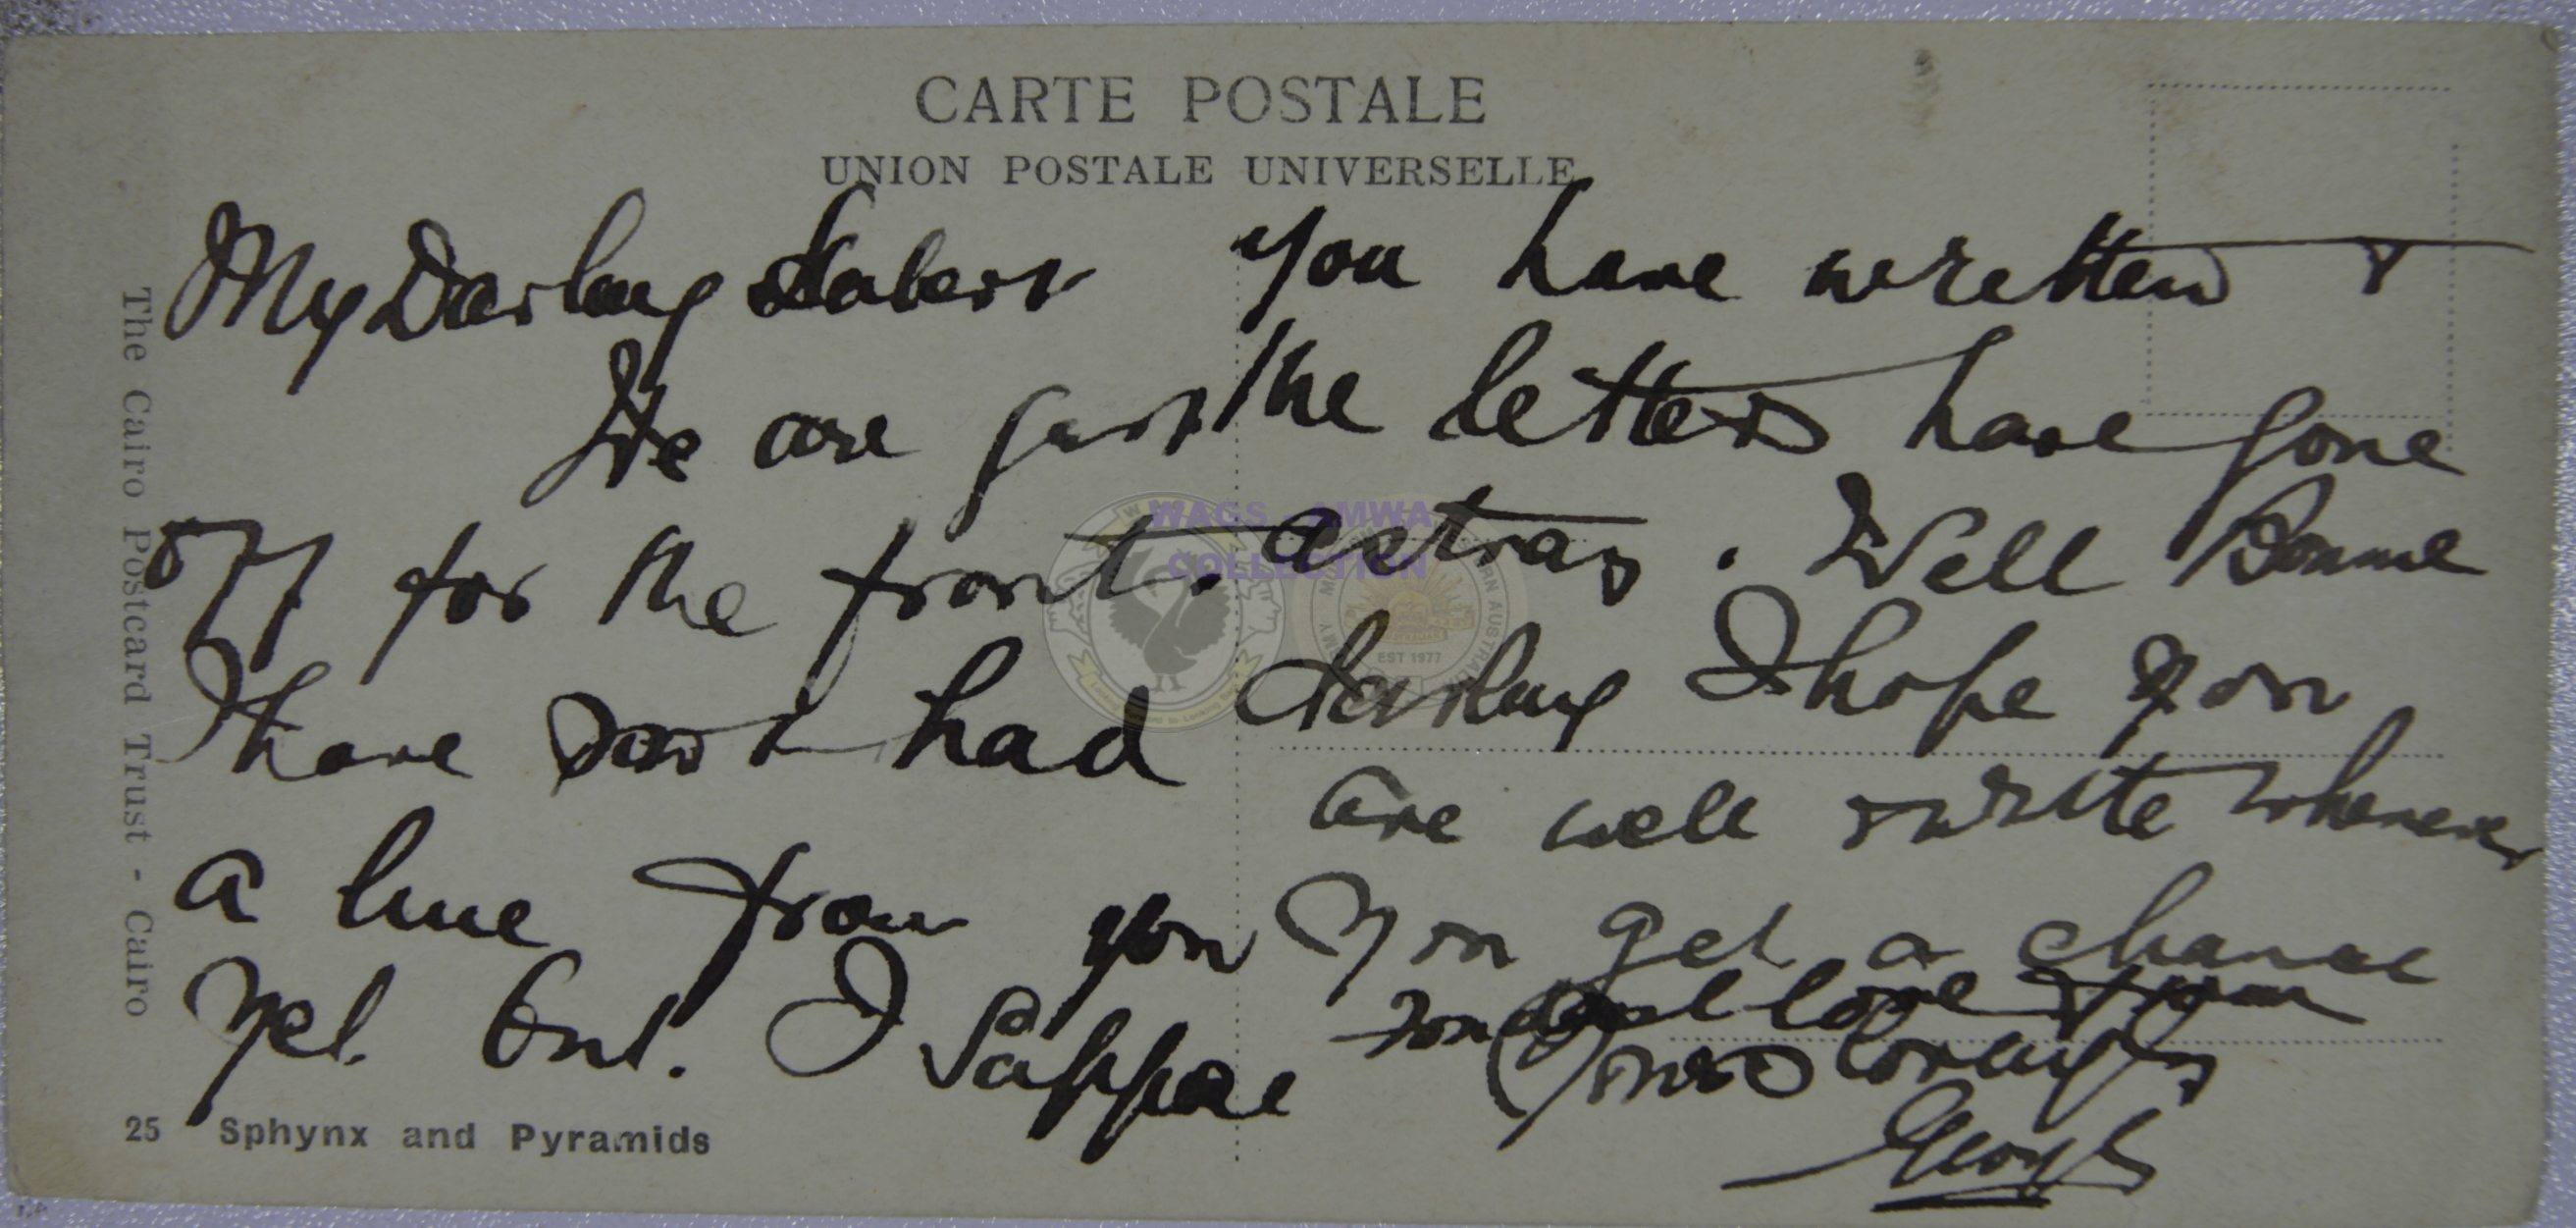 CARTE POSTALE
UNION POSTALE UNIVERSELLE
The Cairo Postcard Trust - Cairo
My Darling
We are just
off for the front.
I have not had
a line from you
yet. but. I suppose
you have written &
the letters have gone
astray. Well Bonnie
darling I hope you
are well & write whenever
you get a chance
love from
yours lovingly
George
25 Sphynx and Pyramids
WAGS - AMWA
COLLECTION
EST 1977